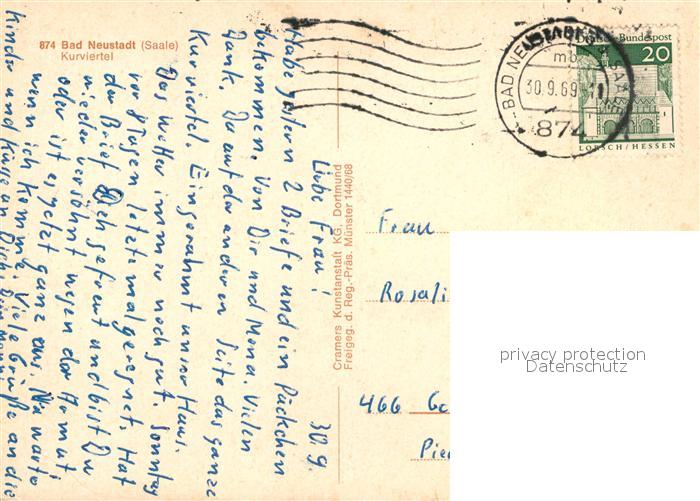 874 Bad Neustadt (Saale)
Kurviertel
30.9.
Liebe Frau!
Habe gestern 2 Briefe und ein Päckchen
bekommen. Von Dir und Mona. Vielen
Dank. Du auf der anderen Seite das ganze
Kurviertel. Eingerahmt unser Haus.
Das Wetter immer noch gut. Sonntag
vor 8 Tagen letztemal geregnet. Hat
der Brief Dich gefreut und bist Du
wieder versöhnt wegen der Armut
oder ist es jetzt ganz aus. Na warte
wenn ich komme. Viele Grüße an die
Kinder und Küsse an Dich. Dein
Cramers Kunstanstalt KG, Dortmund
Freigeg. d. Reg.-Präs. Münster 1440/68
BAD NEUSTADT SAALE
mb
30.9.69-11
874
Deutsche Bundespost
20
LORSCH/HESSEN
Frau
Rosali
466 Ge
privacy protection
Datenschutz